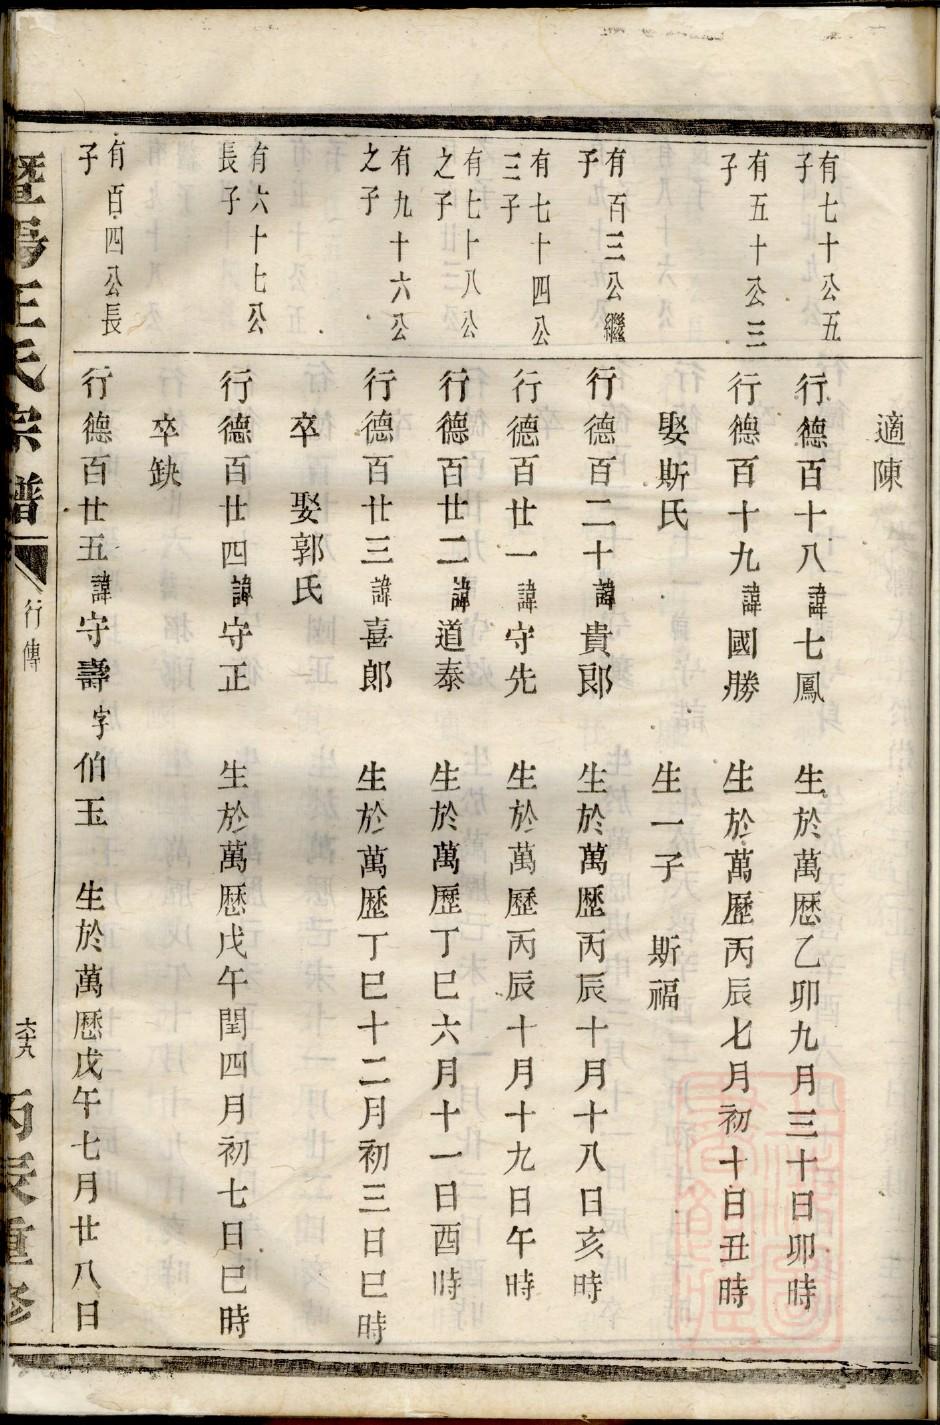 適陳
有七十公五
子
行德百十八諱七鳳 生於萬歷乙卯九月三十日卯時
有五十公三
子
行德百十九諱國勝 生於萬歷丙辰七月初十日丑時
娶斯氏 生一子 斯福
有百三公繼
子
行德百二十諱貴郎 生於萬歷丙辰十月十八日亥時
有七十四公
三子
行德百廿一諱守先 生於萬歷丙辰十月十九日午時
有七十八公
之子
行德百廿二諱道泰 生於萬歷丁巳六月十一日酉時
有九十六公
之子
行德百廿三諱喜郎 生於萬歷丁巳十二月初三日巳時
卒 娶郭氏
有六十七公
長子
行德百廿四諱守正 生於萬歷戊午閏四月初七日巳時
卒缺
有百四公長
子
行德百廿五諱守壽字伯玉 生於萬歷戊午七月廿八日
暨陽王氏宗譜 行傳 六十九 丙辰重修